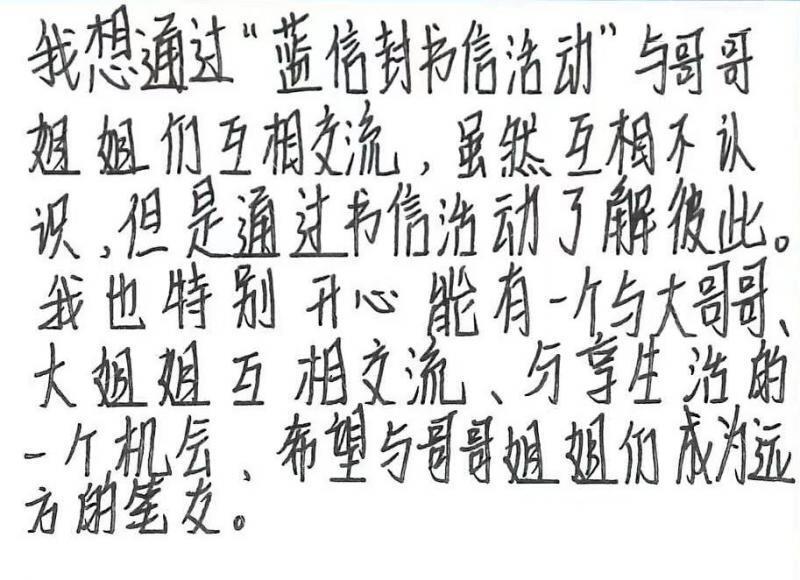 我想通过“蓝信封书信活动”与哥哥
姐姐们互相交流，虽然互相不认
识，但是通过书信活动了解彼此。
我也特别开心能有一个与大哥哥、
大姐姐互相交流、分享生活的
一个机会、希望与哥哥姐姐们成为远
方的笔友。